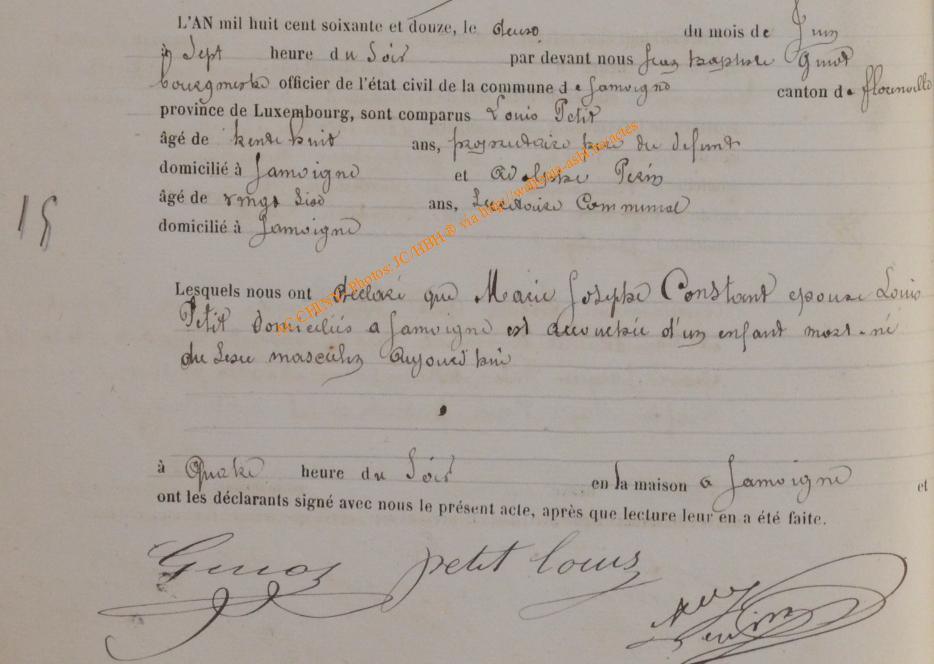 L'AN mil huit cent soixante et douze, le deux du mois de Juin
à Sept heure du Soir par devant nous Jean baptiste Guiot
bourgmestre officier de l'état civil de la commune de Jamoigne canton de florenville
province de Luxembourg, sont comparus Louis Petit
âgé de trente huit ans, propriétaire père du defunt
domicilié à Jamoigne et Adolphe Perin
âgé de vingt Six ans, Secrétaire Communal
domicilié à Jamoigne
15
Lesquels nous ont déclaré que Marie Josephe Constant epouse Louis
Petit domiciliés a Jamoigne est accouchée d'un enfant mort-né
du Sexe masculin aujourd'hui
à Quatre heure du Soir en la maison a Jamoigne et
ont les déclarants signé avec nous le présent acte, après que lecture leur en a été faite.
Guiot petit louis
Perin
Photos: JC/HBH® via http://